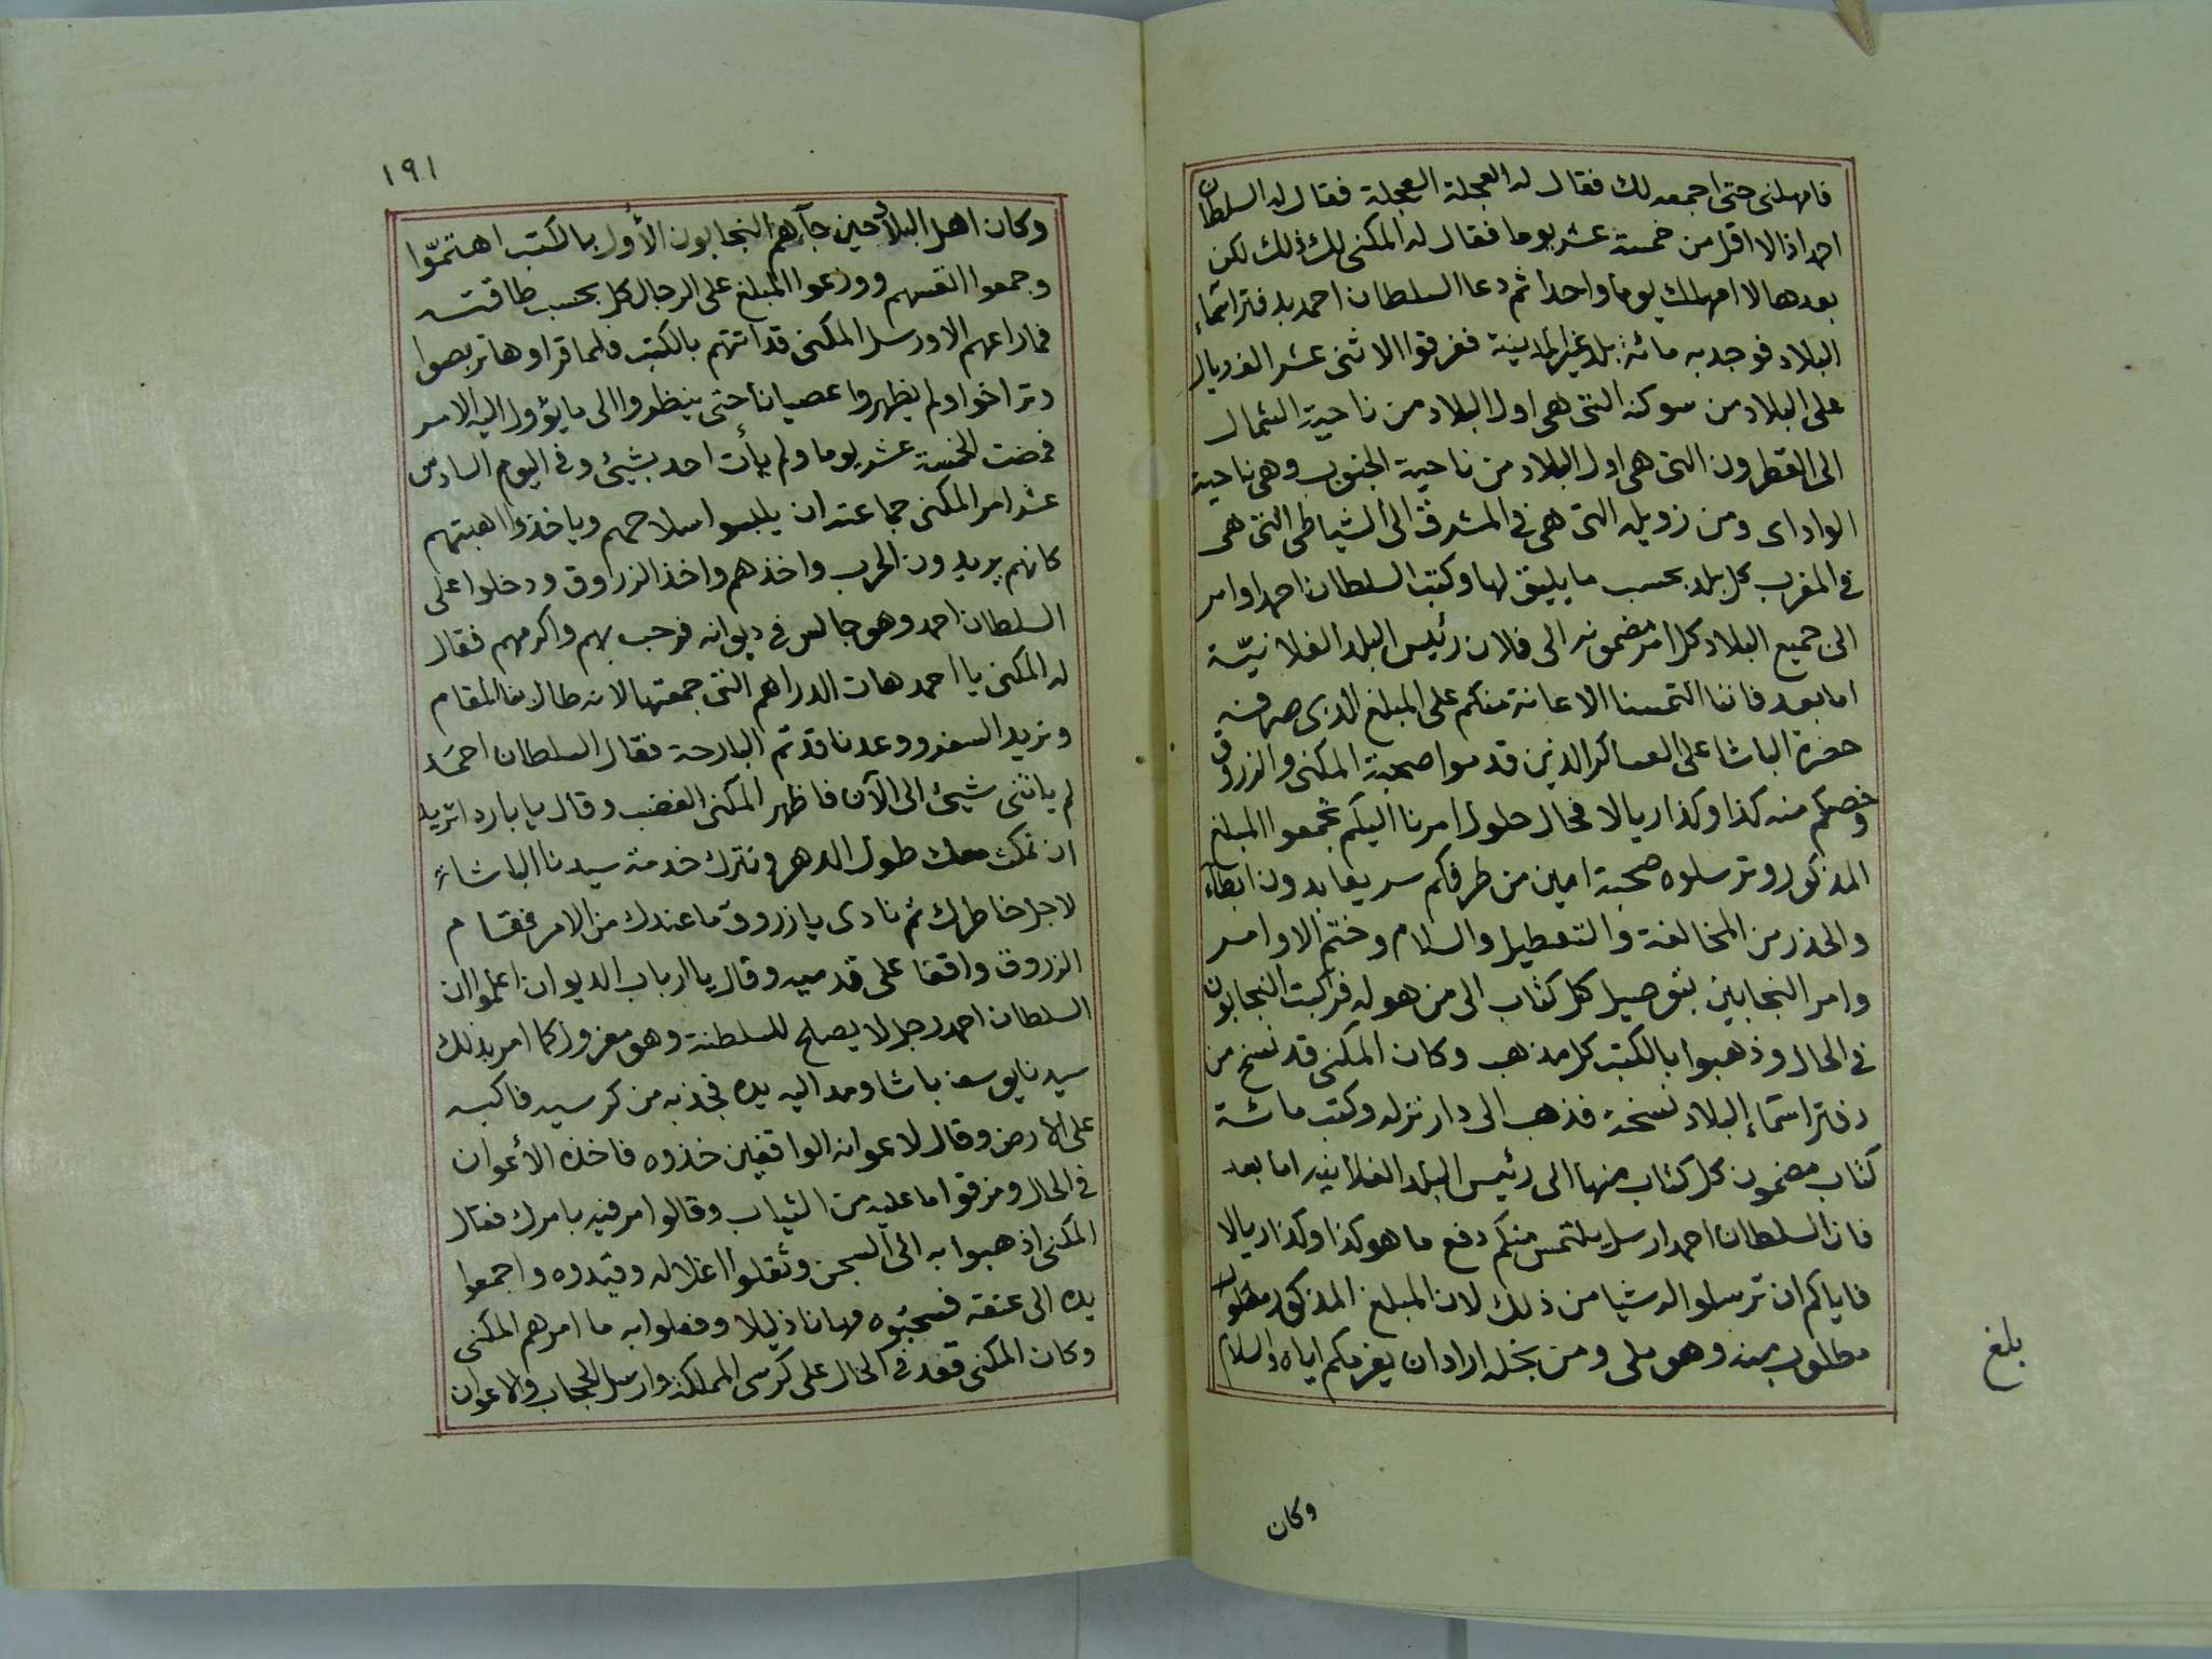 فامهلنى حتى اجمعه لك فقال له العجلة العجلة فقال له السلطان
احمد اذا لا اقل من خمسة عشر يوما فقال له المكنى لك ذلك لكن
بعدها لا امهلك يوما واحدا ثم دعا السلطان احمد بدفتر اسماء
البلاد فوجد به مائة بلد غير المدينة ففرقوا الاثنى عشر الف ريال
على البلاد من سوكنه التى هى اول البلاد من ناحية الشمال
الى القطرون التى هى اول البلاد من ناحية الجنوب وهى ناحية
الواداى ومن زويله التى هى فى المشرق الى الشياطى التى هى
فى المغرب كل بلد بحسب ما يليق لها وكتب السلطان احمد اوامر
الى جميع البلاد كل امر مضمونه الى فلان رئيس البلد الفلانيّة
اما بعد فاننا التمسنا الاعانة منكم على المبلغ الذى صرفه
حضرة الباشا على العساكر الذين قدموا صحبة المكنى والزروق
وخصكم منه كذا وكذا ريالا فحال حلول امرنا اليكم تجمعوا المبلغ
المذكور وترسلوه صحبة امين من طرفكم سريعا بدون ابطاء
والحذر من المخالفة والتعطيل والسلام وختم الاوامر
وامر النجابين بتوصيل كل كتاب الى من هو له فركبت النجابون
فى الحال وذهبوا بالكتب كل مذهب وكان المكنى قد نسخ من
دفتر اسماء البلاد نسخة فذهب الى دار نزله وكتب مائة
كتاب مضمون كل كتاب منها الى رئيس البلد الفلانيه اما بعد
فان السلطان احمد ارسل يلتمس منكم دفع ما هو كذا وكذا ريالا
فاياكم ان ترسلوا له شيا من ذلك لان المبلغ المذكور مطلوب
مطلوب منه وهو ملى ومن بخله اراد ان يغرمكم اياه والسلام
بلغ
وكان
١٩١
وكان اهل البلاد حين جآءهم النجابون الأول بالكتب اهتمّوا
وجمعوا انفسهم ووزعوا المبلغ على الرجال كل بحسب طاقته
فما راعهم الا ورسل المكنى قد اتتهم بالكتب فلما قراوها تربصوا
وتراخوا ولم يظهروا عصيانا حتى ينظروا الى ما يؤول اليه الامر
فمضت الخمسة عشر يوما ولم يأت احد بشيئ وفى اليوم السادس
عشر امر المكنى جماعته ان يلبسوا سلاحهم وياخذوا اهبتهم
كانهم يريدون الحرب واخذهم واخذ الزراوق ودخلوا على
السلطان احمد وهو جالس فى ديوانه فرحب بهم واكرمهم فقال
له المكنى يا احمد هات الدراهم التى جمعتها لانه طال بنا المقام
ونريد السفر ووعدنا قد تم البارحة فقال السلطان احمَد
لم ياتنى شيئ الى الآن فاظهر المكنى الغضب وقال يا بارد اتريد
ان نمكث معك طول الدهر ونترك خدمة سيدنا الباشا
لاجل خاطرك ثم نادى يا زروق ما عندك من الامر فقام
الزروق واقفا على قدميه وقال يا ارباب الديوان اعلموا ان
السلطان احمد رجل لا يصلح للسلطنة وهو معزول كما امر بذلك
سيدنا يوسف باشا ومد اليه يده فجذبه من كرسيه فاكبه
على الارض وقال لاعوانه الواقفين خذوه فاخذه الأعوان
فى الحال ومزقوا ما عليه من الثياب وقالوا مر فيه بامرك فقال
المكنى اذهبوا به الى السجن وثقلوا اغلاله وقيدوه واجمعوا
يده الى عنقه فسحبوه مهانا ذليلا وفعلوا به ما امرهم المكنى
وكان المكنى قعد فى الحال على كرسى المملكة وارسل الحجاب والاعوان